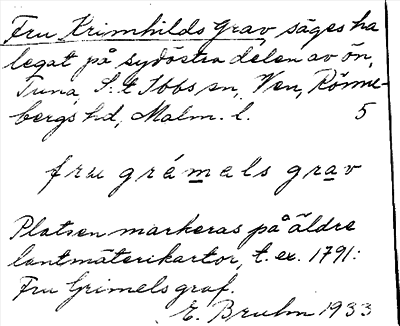 Fru Krimhilds grav, säges ha
legat på sydöstra delen av ön,
Tuna, S:t Ibbs sn, Ven, Rönne-
bergs hd, Malm. l. 5
fru grémels grav
Platsen markeras på äldre
lantmäterikartor, t. ex. 1791:
Fru Grimels graf.
E. Bruhn 1933